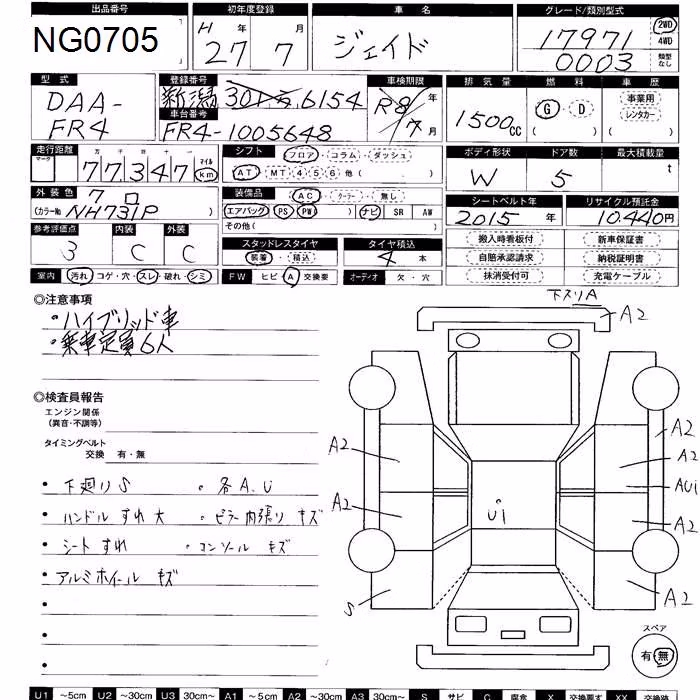 出品番号 初年度登録 車名 グレード/類別型式
NG0705 H 27 7 ジェイド 17971 2WD
0003 4WD
類型なし
型式 登録番号 車検期限 排気量 燃料 車歴
DAA- 新潟 6154 R8年 事業用
車台番号 1500cc G・D レンタカー
FR4 FR4-1005648 7月 ( ) ( )
走行距離 シフト フロア・コラム・ダッシュ ボディ形状 ドア数 最大積載量
マーク 十万 万 千 百 十 一 マイル
77,347 km AT MT 4 5 6 他( ) W 5
外装色 クロ 装備品 AC・クーラー・無し シートベルト年 リサイクル預託金
(カラーNo NH731P) エアバッグ PS PW ナビ SR AW 2015年 10,440円
その他( )
参考評価点 内装 外装 スタッドレスタイヤ タイヤ積込 搬入時看板付 新車保証書
3 C C 装着・積込 4本 自賠承認請求 納税証明書
室内 汚れ コゲ・穴・スレ・破れ・シミ FW ヒビ・A・交換要 オーディオ 欠・穴 抹消受付可 充電ケーブル
◎注意事項
・ハイブリッド車
・乗車定員6人
下スリA
A2
◎検査員報告
エンジン関係
(異音・不調等)
タイミングベルト
交換 有・無
・下廻りS ・各A.U
・ハンドルすれ大 ・ピラー内張りキズ
・シートすれ ・コンソールキズ
・アルミホイールキズ
A2 A2
A2
AU1
A2 U1 A2
S A2
スペア
有・無
U1 ~5cm U2 ~30cm U3 30cm~ A1 ~5cm A2 ~30cm A3 30cm~ S サビ C 腐食 X 交換要す XX 交換跡